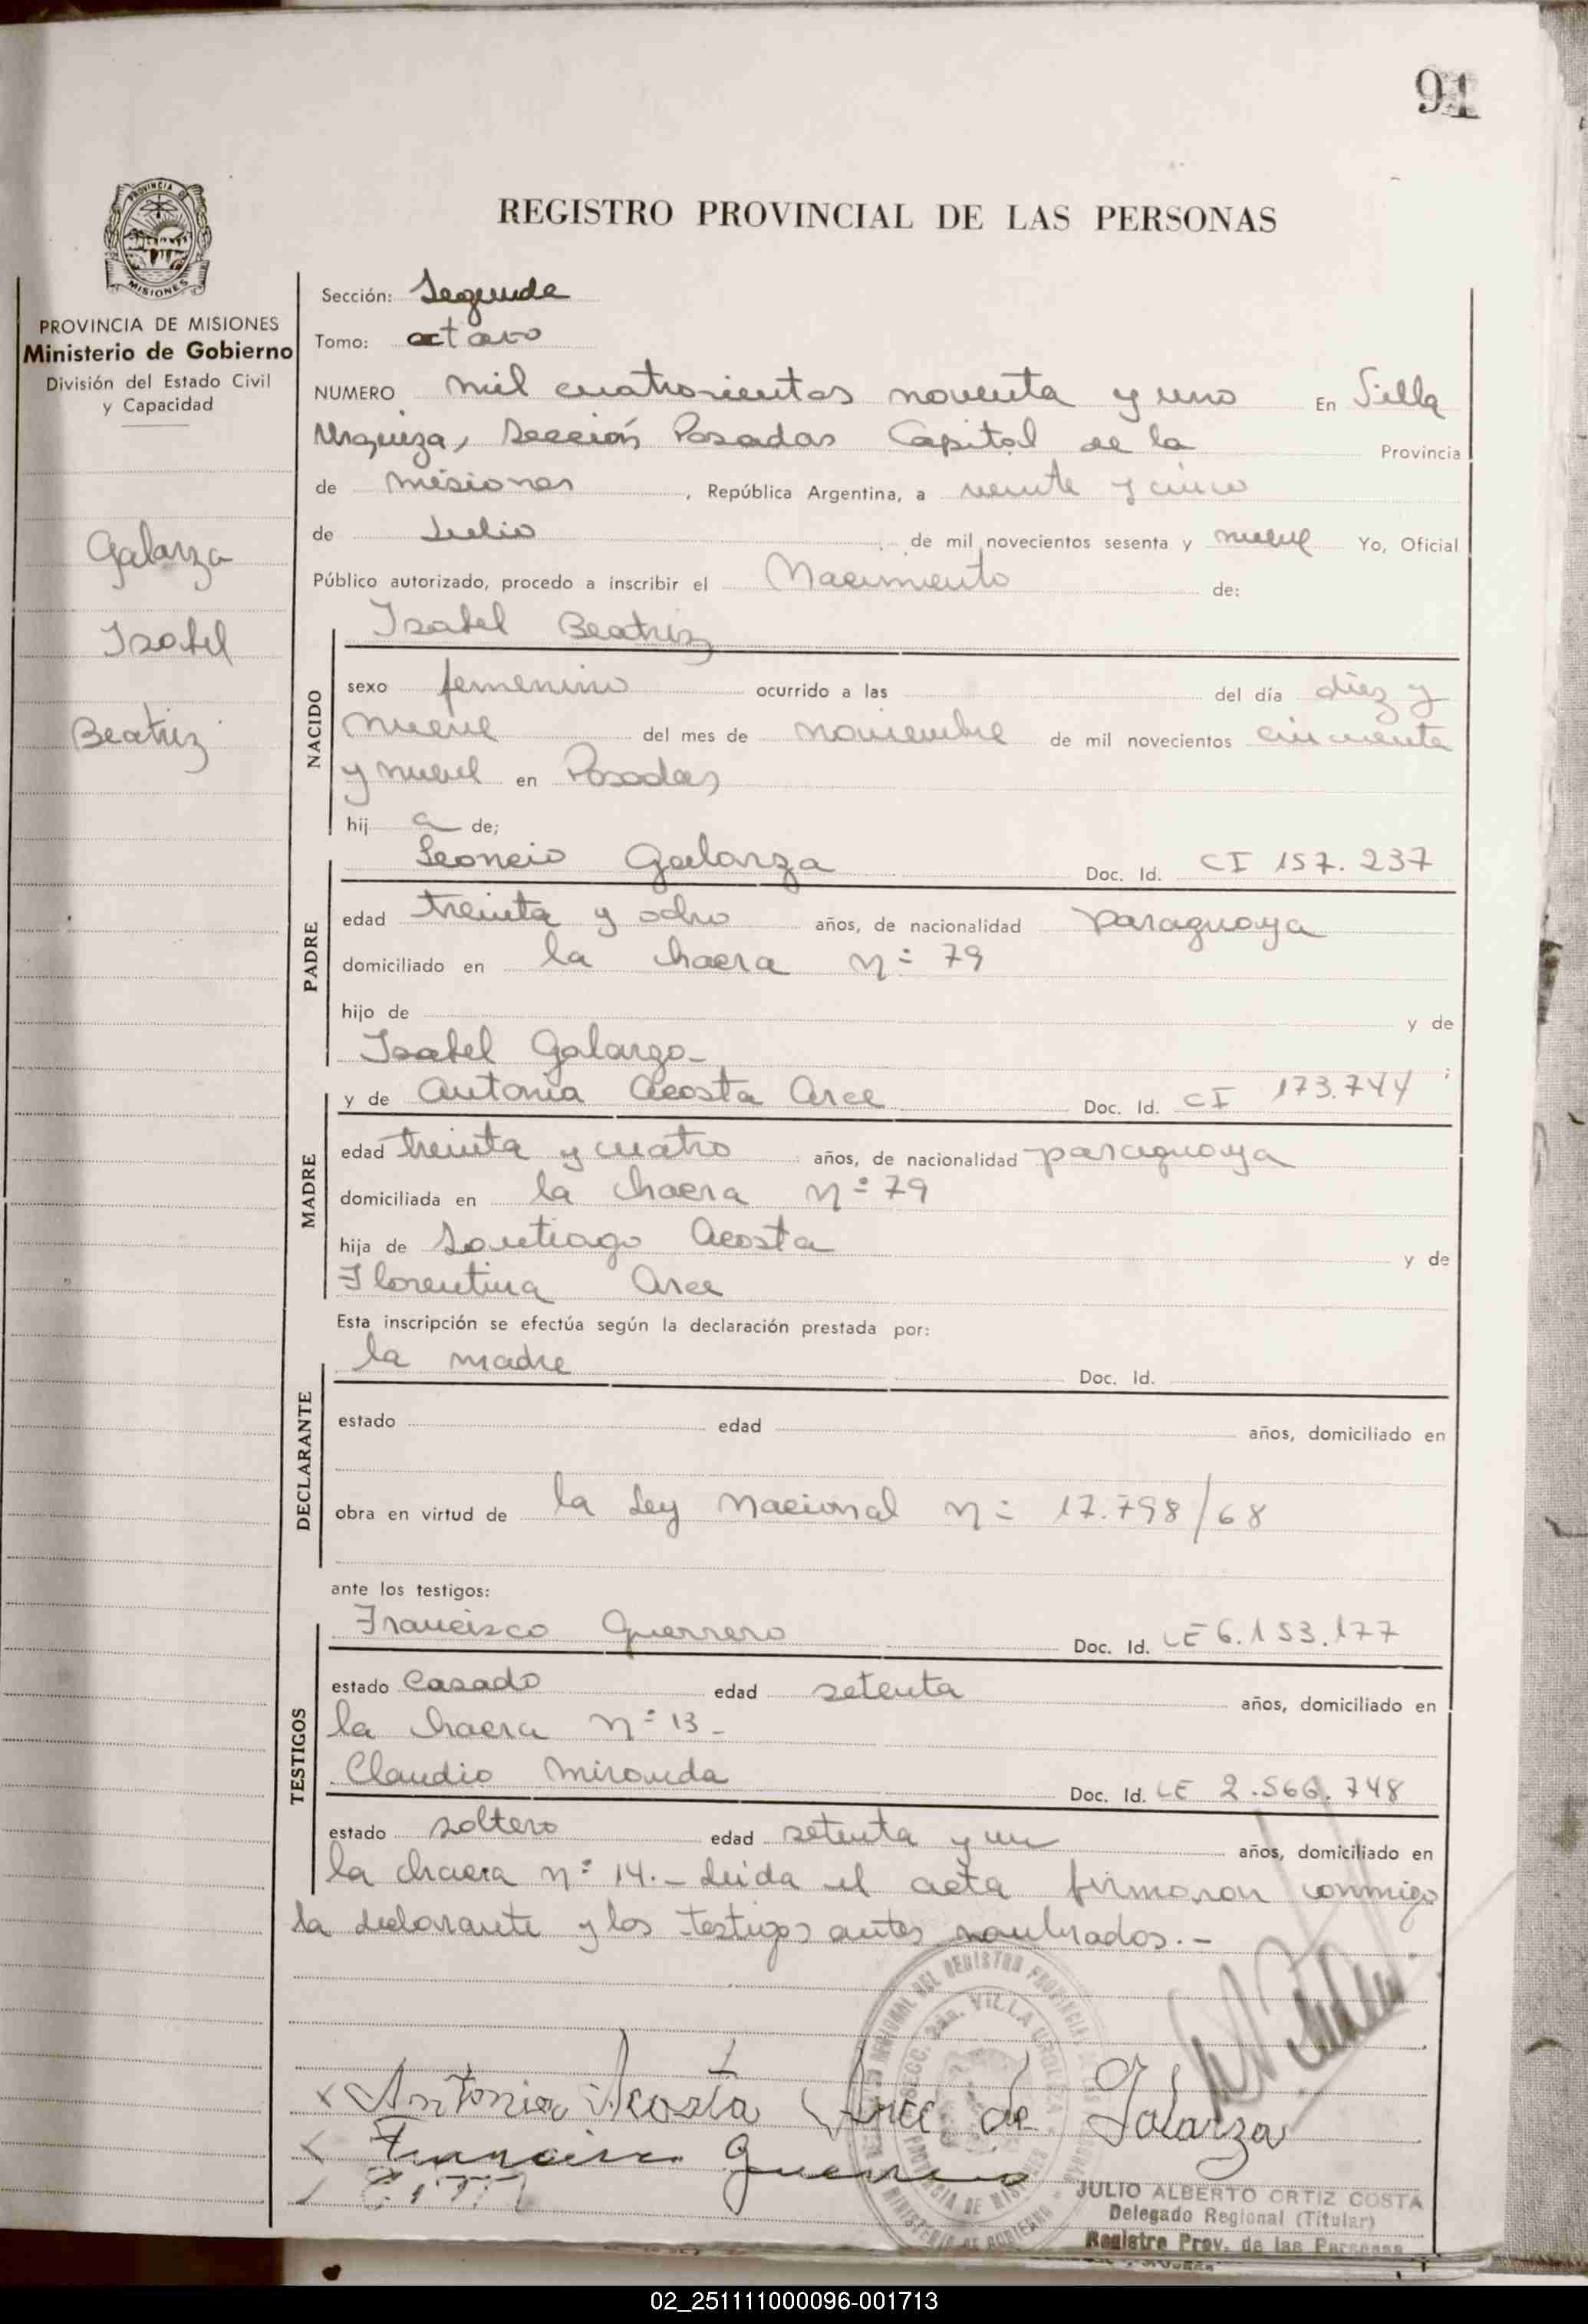 91
REGISTRO PROVINCIAL DE LAS PERSONAS
PROVINCIA DE MISIONES
MISIONES
PROVINCIA DE MISIONES
Ministerio de Gobierno
División del Estado Civil
y Capacidad
Galarza
Isabel
Beatriz
Sección: Segunda
Tomo: octavo
NUMERO mil cuatrocientos noventa y uno En Villa
Urquiza, Sección Posadas Capital de la Provincia
de Misiones, República Argentina, a veinte y cinco
de Julio de mil novecientos sesenta y nueve Yo, Oficial
Público autorizado, procedo a inscribir el Nacimiento de:
NACIDO
Isabel Beatriz
sexo femenino ocurrido a las del día diez y
nueve del mes de noviembre de mil novecientos cincuenta
y nueve en Posadas
hij a de;
PADRE
Leoncio Galarza Doc. Id. CI 157.237
edad treinta y ocho años, de nacionalidad paraguaya
domiciliado en la chacra n° 79
hijo de y de
Isabel Galarza-
MADRE
y de Antonia Acosta Arce Doc. Id. CI 173.744
edad treinta y cuatro años, de nacionalidad paraguaya
domiciliada en la chacra n° 79
hija de Santiago Acosta y de
Florentina Arce
Esta inscripción se efectúa según la declaración prestada por:
DECLARANTE
la madre Doc. Id.
estado edad años, domiciliado en
obra en virtud de la Ley Nacional n° 17.798/68
ante los testigos:
TESTIGOS
Francisco Guerrero Doc. Id. LE 6.153.177
estado Casado edad setenta años, domiciliado en
la chacra n° 13-
Claudio Miranda Doc. Id. LE 2.566.748
estado soltero edad setenta y un años, domiciliado en
la chacra n° 14.- Leida el acta firmaron conmigo
la declarante y los testigos antes nombrados.-
Antonia Acosta Arce de Galarza
Francisco Guerrero
JULIO ALBERTO ORTIZ COSTA
Delegado Regional (Titular)
Registro Prov. de las Personas
02_251111000096-001713